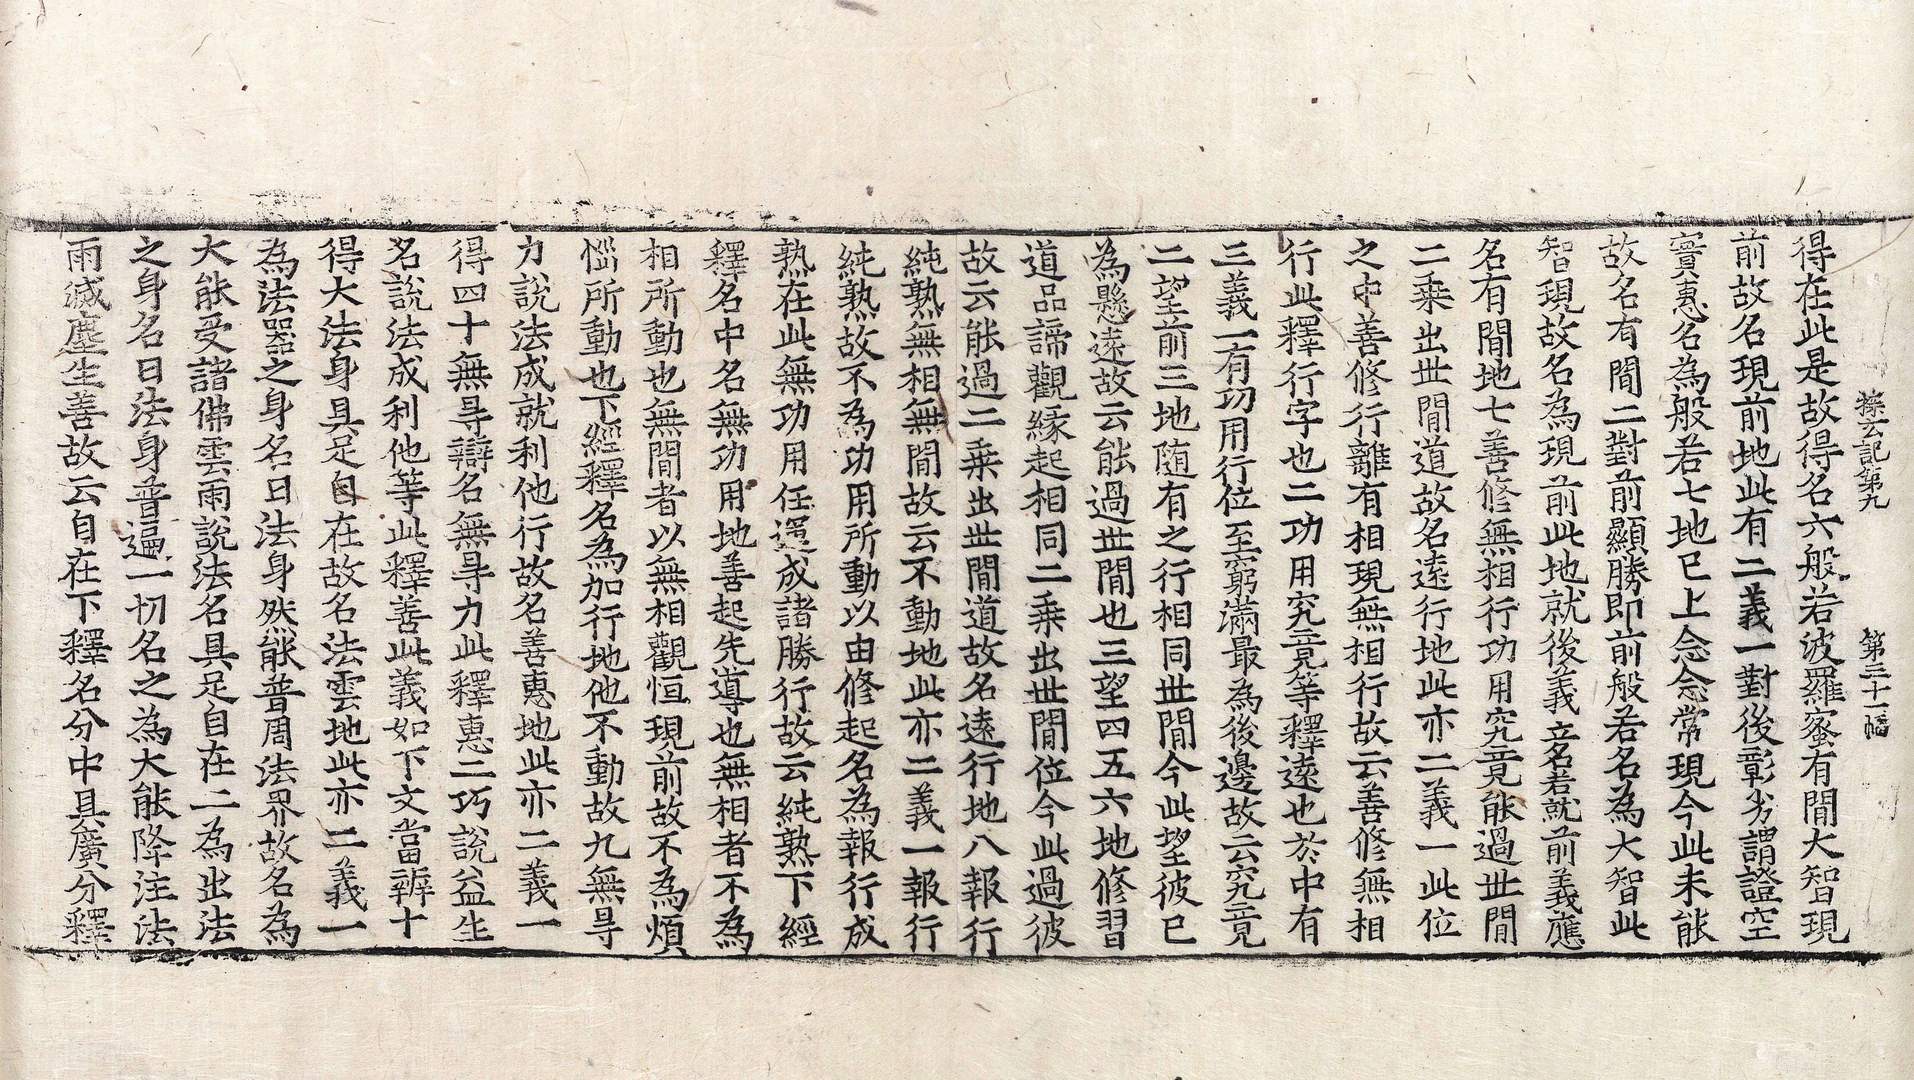 探玄記第九　第三十一幅
得在此是故得名六般若波羅蜜有間大智現
前故名現前地此有二義一對後彰劣謂證空
實惠名為般若七地已上念念常現今此未能
故名有間二對前顯勝即前般若名為大智此
智現故名為現前此地就後義立名若就前義應
名有間地七善修無相行功用究竟能過世間
二乘出世間道故名遠行地此亦二義一此位
之中善修行離有相現無相行故云善修無相
行此釋行字也二功用究竟等釋遠也於中有
三義一有功用行位至窮滿最為後邊故云究竟
二望前三地随有之行相同世間今此望彼已
為懸遠故云能過世間也三望四五六地修習
道品諦觀緣起相同二乘出世間位今此過彼
故云能過二乘出世間道故名遠行地八報行
純熟無相無間故云不動地此亦二義一報行
純熟故不為功用所動以由修起名為報行成
熟在此無功用任運成諸勝行故云純熟下經
釋名中名無功用地善起先導也無相者不為
相所動也無間者以無相觀恒現前故不為煩
惱所動也下經釋名為加行地他不動故九無㝵
力說法成就利他行故名善惠地此亦二義一
得四十無㝵辯名無㝵力此釋惠二巧說益生
名說法成利他等此釋善此義如下文當辨十
得大法身具足自在故名法雲地此亦二義一
為法器之身名曰法身然能普周法界故名為
大能受諸佛雲雨說法名具足自在二為出法
之身名曰法身普遍一切名之為大能降注法
雨滅塵生善故云自在下釋名分中具廣分釋